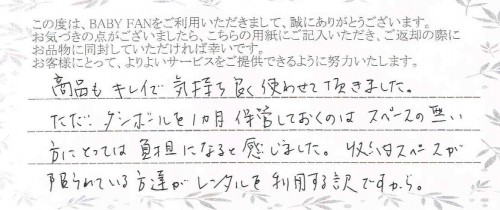 この度は、BABY FANをご利用いただきまして、誠にありがとうございます。
お気づきの点がございましたら、こちらの用紙にご記入いただき、ご返却の際に
お品物に同封していただければ幸いです。
お客様にとって、よりよいサービスをご提供できるように努力いたします。
商品も キレイで 気持ち良く使わせて頂きました。
ただ、ダンボールを1ヵ月 保管しておくのは スペースの無い
方にとっては 負担になると感じました。 収納スペースが
限られている方達が レンタルを 利用する訳ですから。